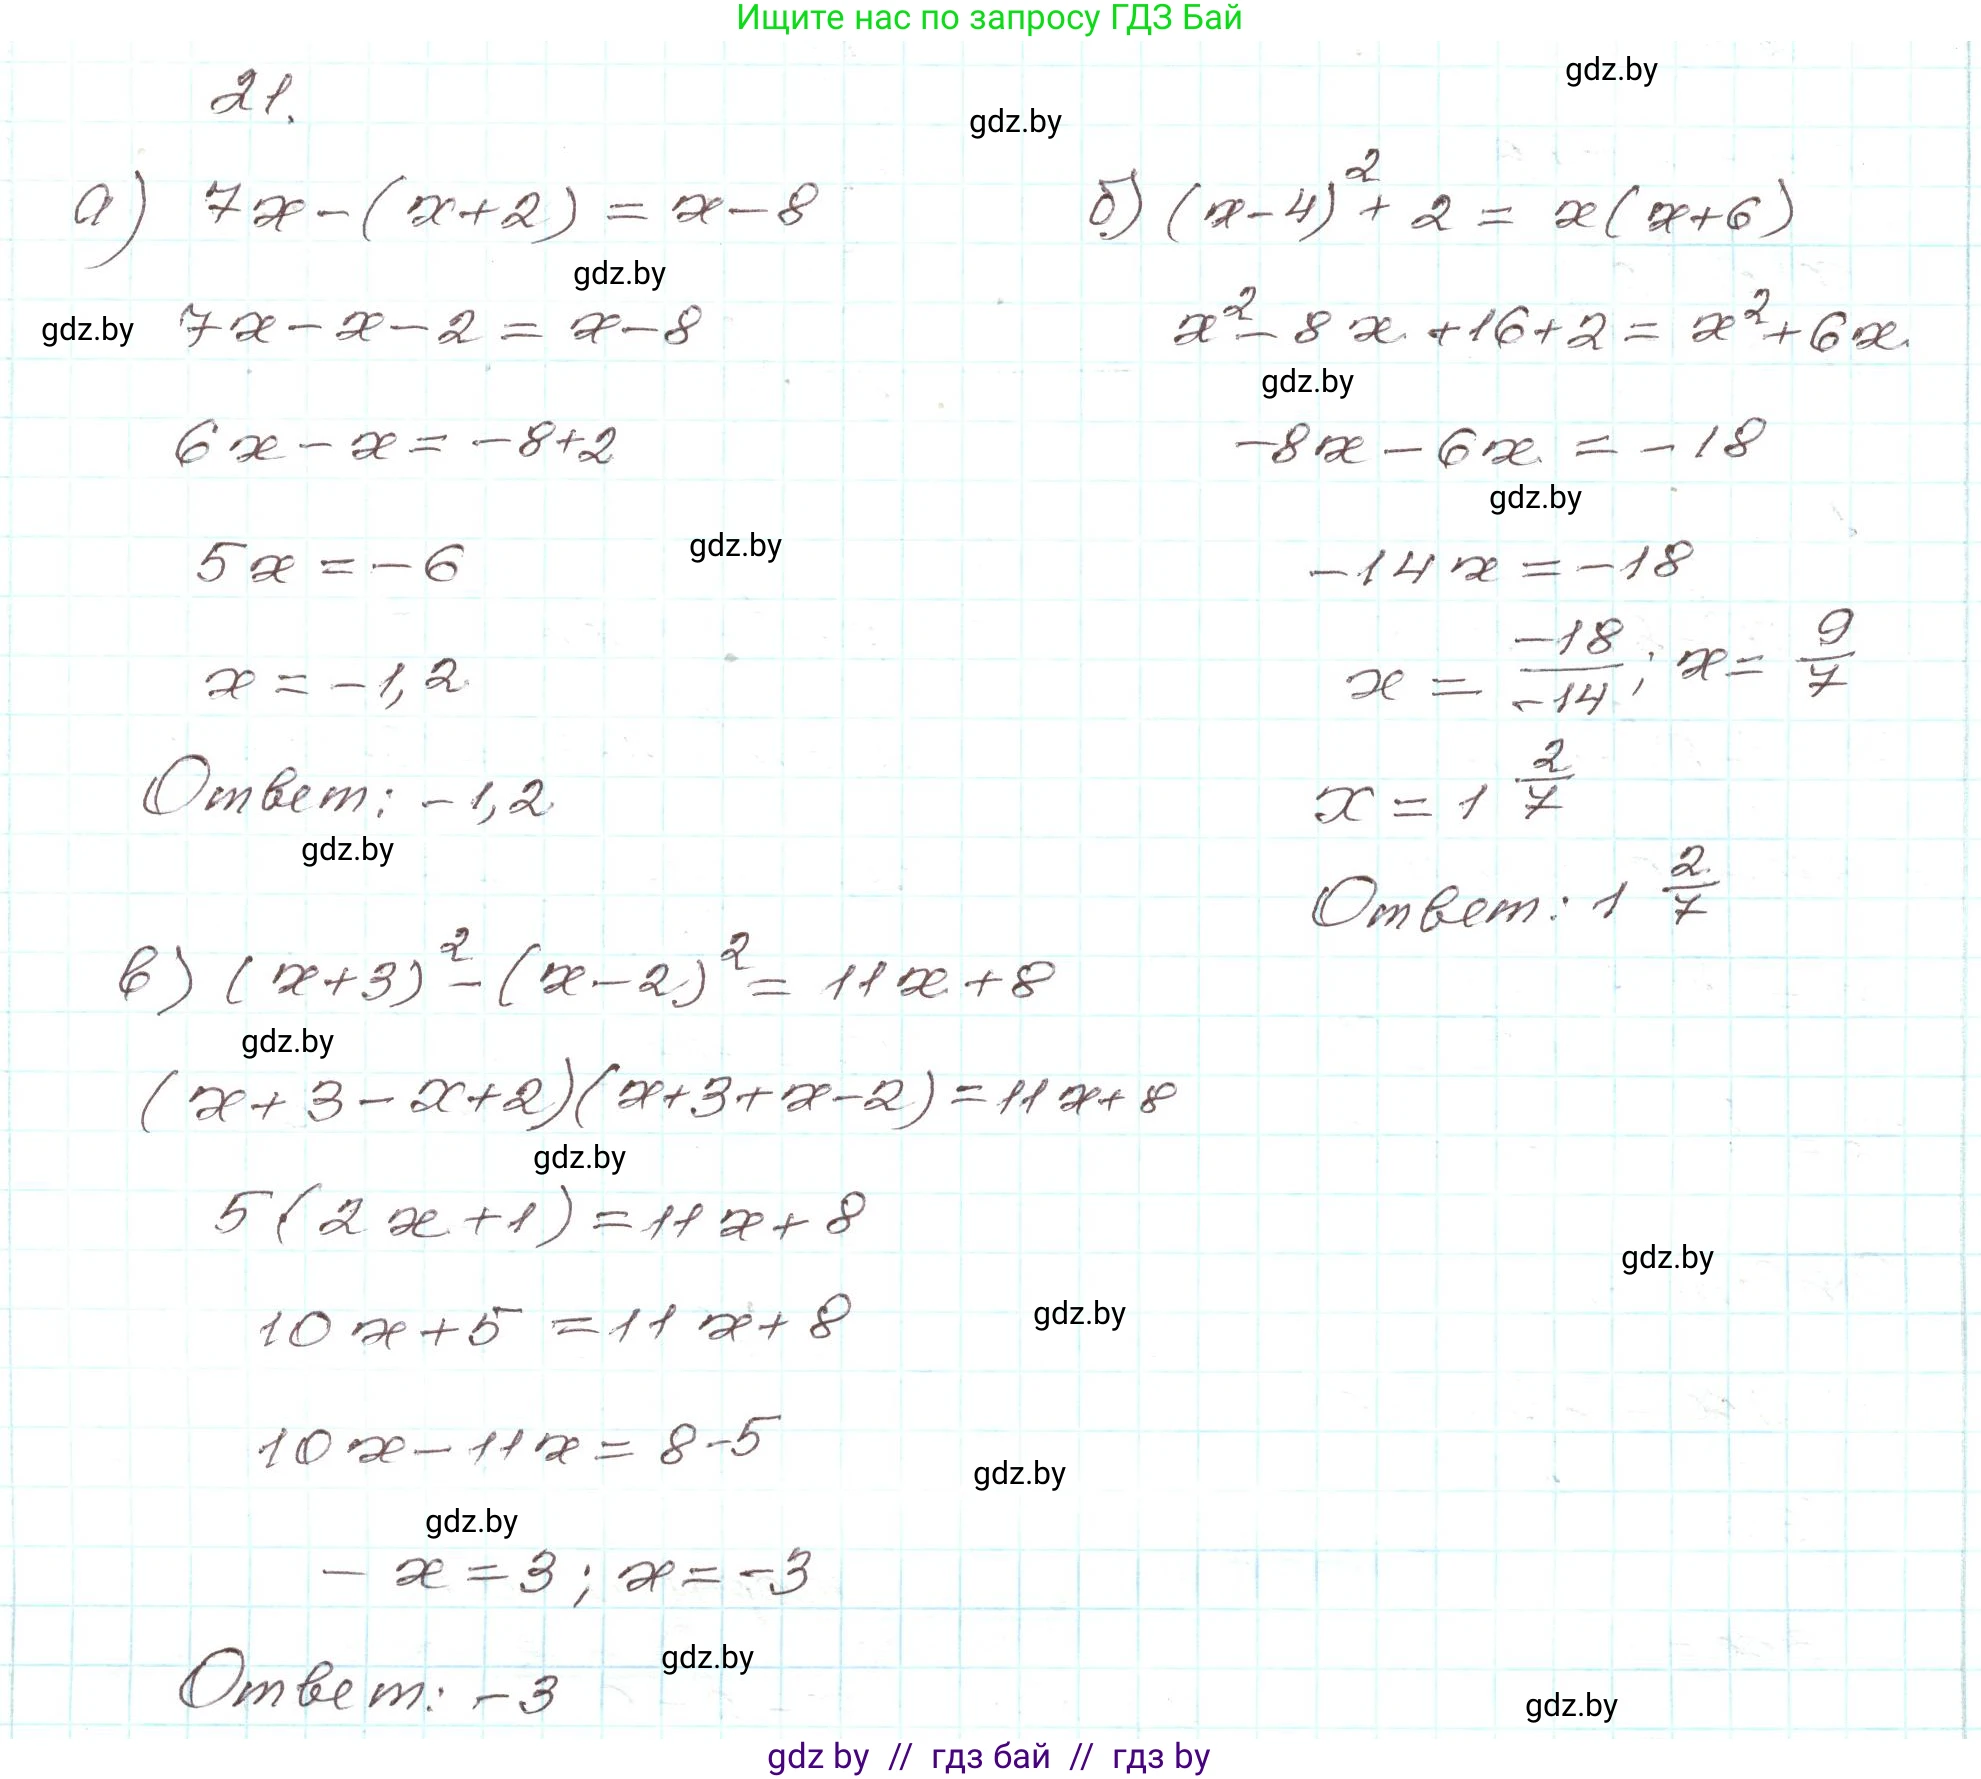 Ищите нас по запросу ГДЗ Бай
gdz.by
21.
gdz.by
а) 7x-(x+2)=x-8
gdz.by
gdz.by 7x-x-2=x-8
6x-x=-8+2
5x=-6
gdz.by
x=-1,2
Ответ: -1,2
gdz.by
б) (x-4)²+2=x(x+6)
x²-8x+16+2=x²+6x
gdz.by
-8x-6x=-18
gdz.by
-14x=-18
x=-18/-14; x=9/7
x=1 2/7
Ответ: 1 2/7
в) (x+3)²-(x-2)²=11x+8
gdz.by
(x+3-x+2)(x+3+x-2)=11x+8
gdz.by
5(2x+1)=11x+8
gdz.by
10x+5=11x+8
gdz.by
10x-11x=8-5
gdz.by
gdz.by
-x=3; x=-3
gdz.by
Ответ: -3
gdz.by
gdz by // гдз бай // гдз by